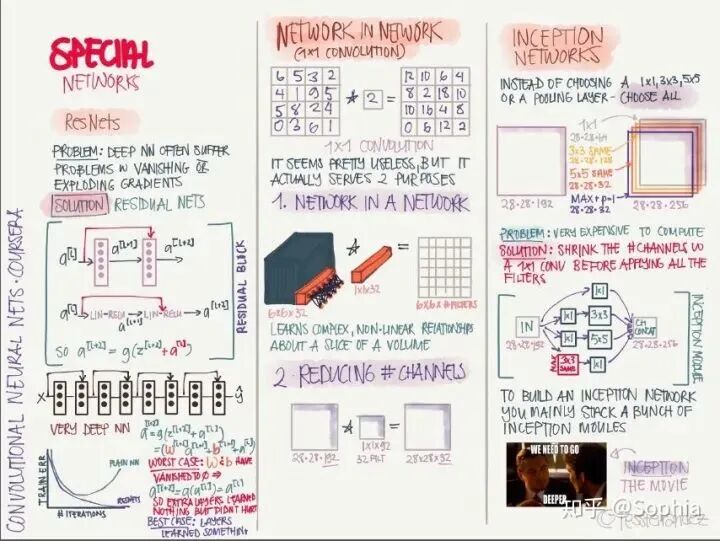 CONVOLUTIONAL NEURAL NETS · COURSERA
SPECIAL
NETWORKS
ResNets
PROBLEM: DEEP NN OFTEN SUFFER
PROBLEMS W VANISHING OR
EXPLODING GRADIENTS
SOLUTION RESIDUAL NETS
a[l] a[l+1] a[l+2]
a[l] LIN-RELU LIN-RELU a[l+2]
a[l+1]
SO a[l+2] = g(z[l+2] + a[l])
RESIDUAL BLOCK
X ŷ
VERY DEEP NN
TRAIN ERR
PLAIN NN
RESNETS
# ITERATIONS
a[l+2] = g(z[l+2] + a[l])
WORST CASE: W & b HAVE
VANISHED TO 0 ⇒
a[l+2] = g(a[l]) = a[l]
SO EXTRA LAYERS LEARNED
NOTHING BUT DIDNT HURT
BEST CASE: LAYERS
LEARNED SOMETHING
NETWORK IN NETWORK
(1×1 CONVOLUTION)
6 5 3 2 12 10 6 4
4 1 9 5 * 2 = 8 2 18 10
5 8 2 4 10 16 4 8
0 3 6 1 0 6 12 2
1×1 CONVOLUTION
IT SEEMS PRETTY USELESS, BUT IT
ACTUALLY SERVES 2 PURPOSES
1. NETWORK IN A NETWORK
* =
6×6×32 1×1×32 6×6×#FILTERS
LEARNS COMPLEX, NON-LINEAR RELATIONSHIPS
ABOUT A SLICE OF A VOLUME
2. REDUCING # CHANNELS
* =
28·28·192 1×1×192 28×28×32
32 FILT
INCEPTION
NETWORKS
INSTEAD OF CHOOSING A 1×1, 3×3, 5×5
OR A POOLING LAYER - CHOOSE ALL
1×1
28·28·64
3×3 SAME
28·28·128
5×5 SAME
28·28·32
MAX+P=1
28·28·32
28·28·192 28·28·256
PROBLEM: VERY EXPENSIVE TO COMPUTE
SOLUTION: SHRINK THE #CHANNELS W
A 1×1 CONV BEFORE APPLYING ALL THE
FILTERS
1×1
IN 1×1 3×3 CH CONCAT
1×1 5×5
28·28·192 28·28·256
3×3 SAME 1×1
INCEPTION MODULE
TO BUILD AN INCEPTION NETWORK
YOU MAINLY STACK A BUNCH OF
INCEPTION MOULES
WE NEED TO GO
DEEPER
INCEPTION
THE MOVIE
知乎 @Sophia